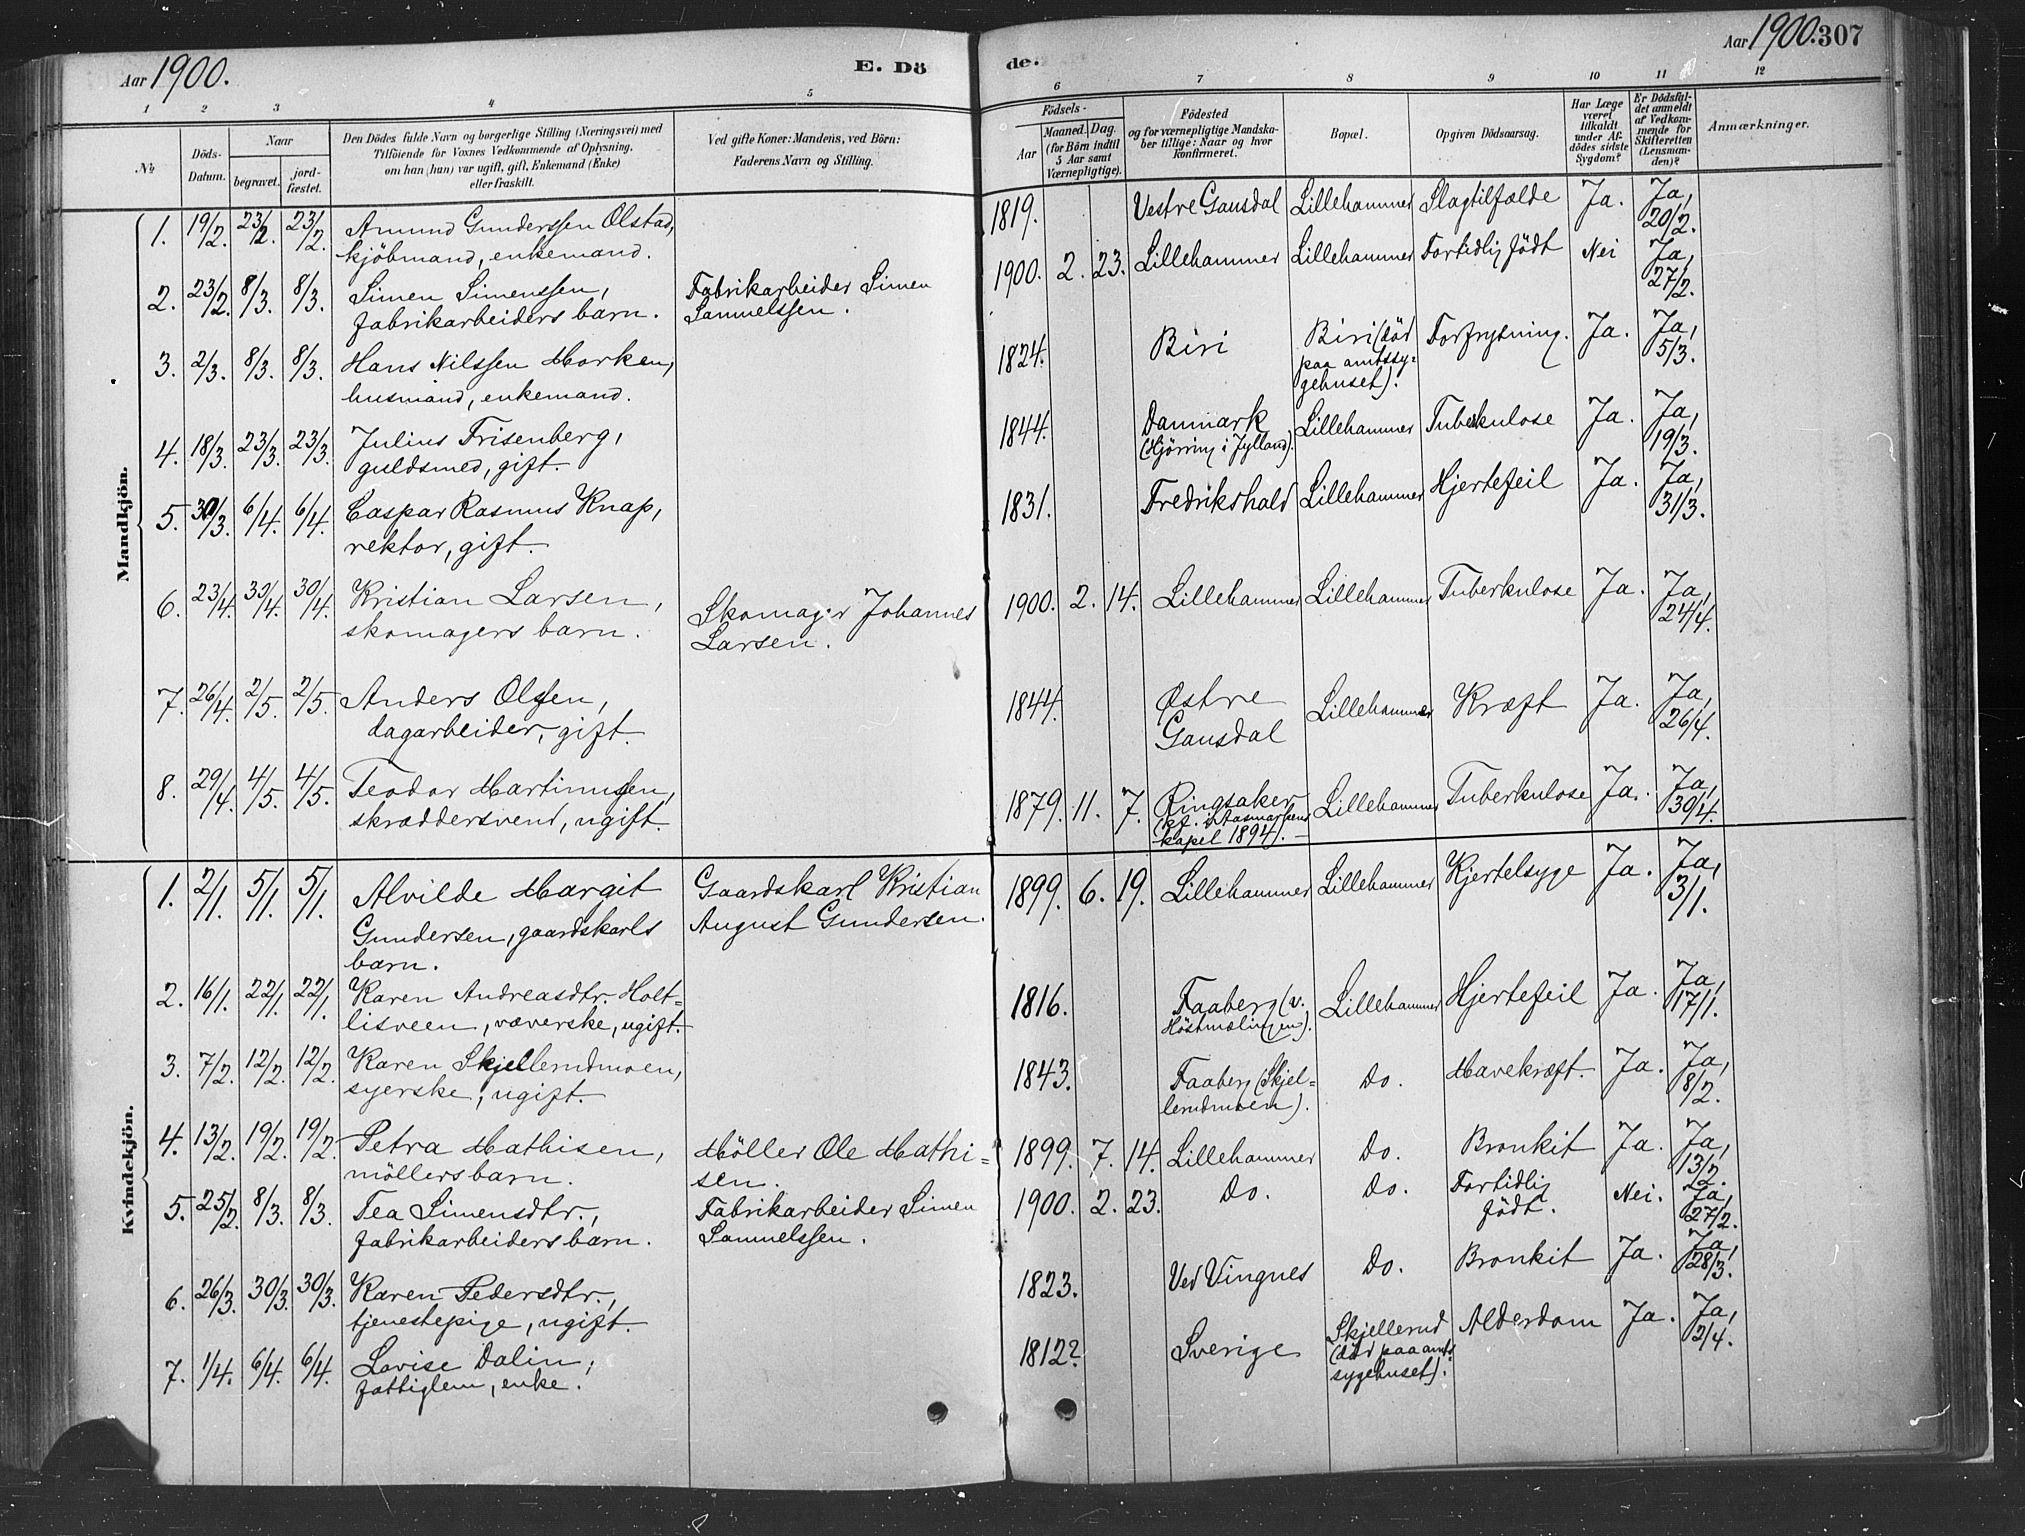 Aar 1900. E. Dö
de. Aar 1900. 307
1 2 3 4 5
6 7 8 9 10 11 12
No
Döds-
Datum.
Naar
begravet.
jord-
fæstet.
Den Dödes fulde Navn og borgerlige Stilling (Næringsvei) med
Tilföiende for Voxnes Vedkommende af Oplysning,
om han (hun) var ugift, gift, Enkemand (Enke)
eller fraskilt.
Ved gifte Koner: Mandens, ved Börn:
Faderens Navn og Stilling.
Födsels-
Aar
Maaned. Dag.
(for Börn indtil
5 Aar samt
Værnepligtige).
Födested
og for værnepligtige Mandska-
ber tillige: Naar og hvor
konfirmeret.
Bopæl.
Opgiven Dödsaarsag.
Har Læge
været
tilkaldt
under Af-
dödes sidste
Sygdom?
Er Dödsfal-
det anmeldt
af Vedkom-
mende for
Skifteretten
(Lensman-
den)?
Anmærkninger.
Mandkjön.
1. 19/2. 23/2. 23/2. Amund Gunderssen Olstad, 1819. Vestre Gausdal Lillehammer Slagtilfælde Ja. Ja,
kjöbmand, enkemand. 20/2.
2. 23/2. 8/3. 8/3. Simen Simenssen, Fabrikarbeider Simen 1900. 2. 23. Lillehammer Lillehammer Fortidlig födt Nei Ja,
fabrikarbeiders barn. Samuelssen. 27/2.
3. 2/3. 8/3. 8/3. Hans Nilssen Morken, 1824. Biri Biri (död Forfrysning. Ja. Ja,
husmand, enkemand. paa amtssy- 5/3.
gehuset).
4. 18/3. 23/3. 23/3. Julius Frisenberg, 1844. Danmark Lillehammer Tuberkulose Ja. Ja,
guldsmed, gift. (Hjörring i Jylland). 19/3.
5. 30/3. 6/4. 6/4. Caspar Rasmus Knap, 1831. Fredrikshald Lillehammer Hjertefeil Ja. Ja,
rektor, gift. 31/3.
6. 23/4. 30/4. 30/4. Kristian Larsen, Skomager Johannes 1900. 2. 14. Lillehammer Lillehammer Tuberkulose Ja. Ja,
skomagers barn. Larsen. 24/4.
7. 26/4. 2/5. 2/5. Anders Olssen, 1844. Østre Lillehammer Kræft Ja. Ja,
dagarbeider, gift. Gausdal 26/4.
8. 29/4. 4/5. 4/5. Teodor Martinussen, 1879. 11. 7. Ringsaker Lillehammer Tuberkulose Ja. Ja,
skræddersvend, ugift. (kf. i Aasmarkens 30/4.
kapel 1894).
Kvindekjön.
1. 2/1. 5/1. 5/1. Alvilde Margit Gaardskarl Kristian 1899. 6. 19. Lillehammer Lillehammer Kjertelsyge Ja. Ja,
Gundersen, gaardskarls August Gundersen. 3/1.
barn.
2. 16/1. 22/1. 22/1. Karen Andreasdtr. Holt= 1816. Faaberg (v. Lillehammer Hjertefeil Ja. Ja,
lisveen, væverske, ugift. Höstmælingen). 17/1.
3. 7/2. 12/2. 12/2. Karen Skjellerudmoen, 1843. Faaberg (Skjel= Do. Mavekræft. Ja. Ja,
syerske, ugift. lerudmoen). 8/2.
4. 13/2. 19/2. 19/2. Petra Mathisen, Möller Ole Mathi= 1899. 7. 14. Lillehammer Do. Bronkit Ja. Ja,
möllersbarn. sen. 13/2.
5. 25/2. 8/3. 8/3. Tea Simensdtr., Fabrikarbeider Simen 1900. 2. 23. Do. Do. Fortidlig Nei. Ja,
fabrikarbeiders barn. Samuelssen. födt. 27/2.
6. 26/3. 30/3. 30/3. Karen Pedersdtr., 1823. Ved Vingnes Do. Bronkit Ja. Ja,
tjenestepige, ugift. 28/3.
7. 1/4. 6/4. 6/4. Lovise Dalin, 1812? Sverige Skjellerud Alderdom Ja. Ja,
fattiglem, enke. (död paa amts= 2/4.
sygehuset).